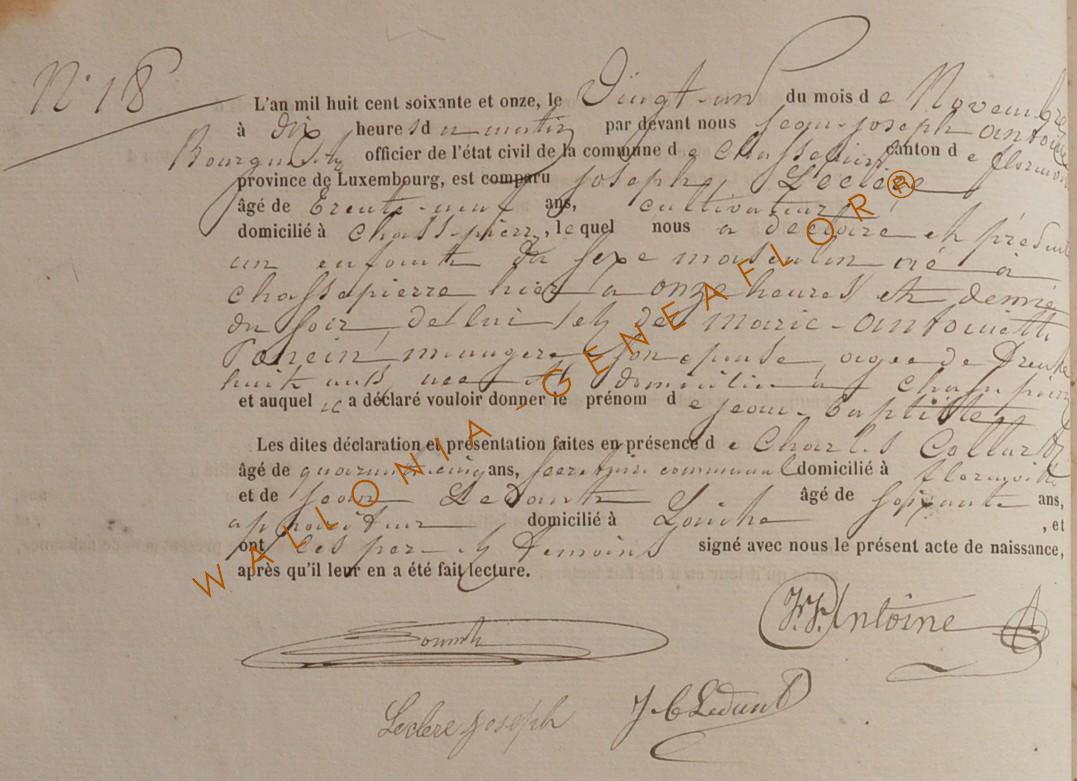 N° 18
L'an mil huit cent soixante et onze, le Vingt-un du mois de Novembre
à dix heures du matin par devant nous Jean-Joseph Antoine
Bourgmestre officier de l'état civil de la commune de Chassepierre canton de florenville
province de Luxembourg, est comparu Joseph Leclère
âgé de trente-neuf ans, cultivateur
domicilié à Chassepierre, lequel nous a déclaré et présenté
un enfant du sexe masculin né à
Chassepierre hier a onze heures et demie
du soir de lui et de Marie-Antoinette
menagère son epouse agée de trente
huit ans domiciliée à Chassepierre
et auquel il a déclaré vouloir donner le prénom de Jean-Baptiste
Les dites déclaration et présentation faites en présence de Charles Collard
âgé de quarante cinq ans, secrétaire communal domicilié à florenville
et de Jean Ledant âgé de soixante ans,
domicilié à , et
ont les pere et temoins signé avec nous le présent acte de naissance,
après qu'il leur en a été fait lecture.
J.J. Antoine
Leclere Joseph
J B Ledant
WALLONIA - GENEAFLOR®